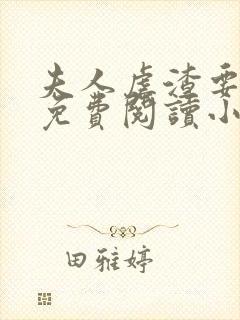 夫人虐渣要
免費閱讀小
田雅婷